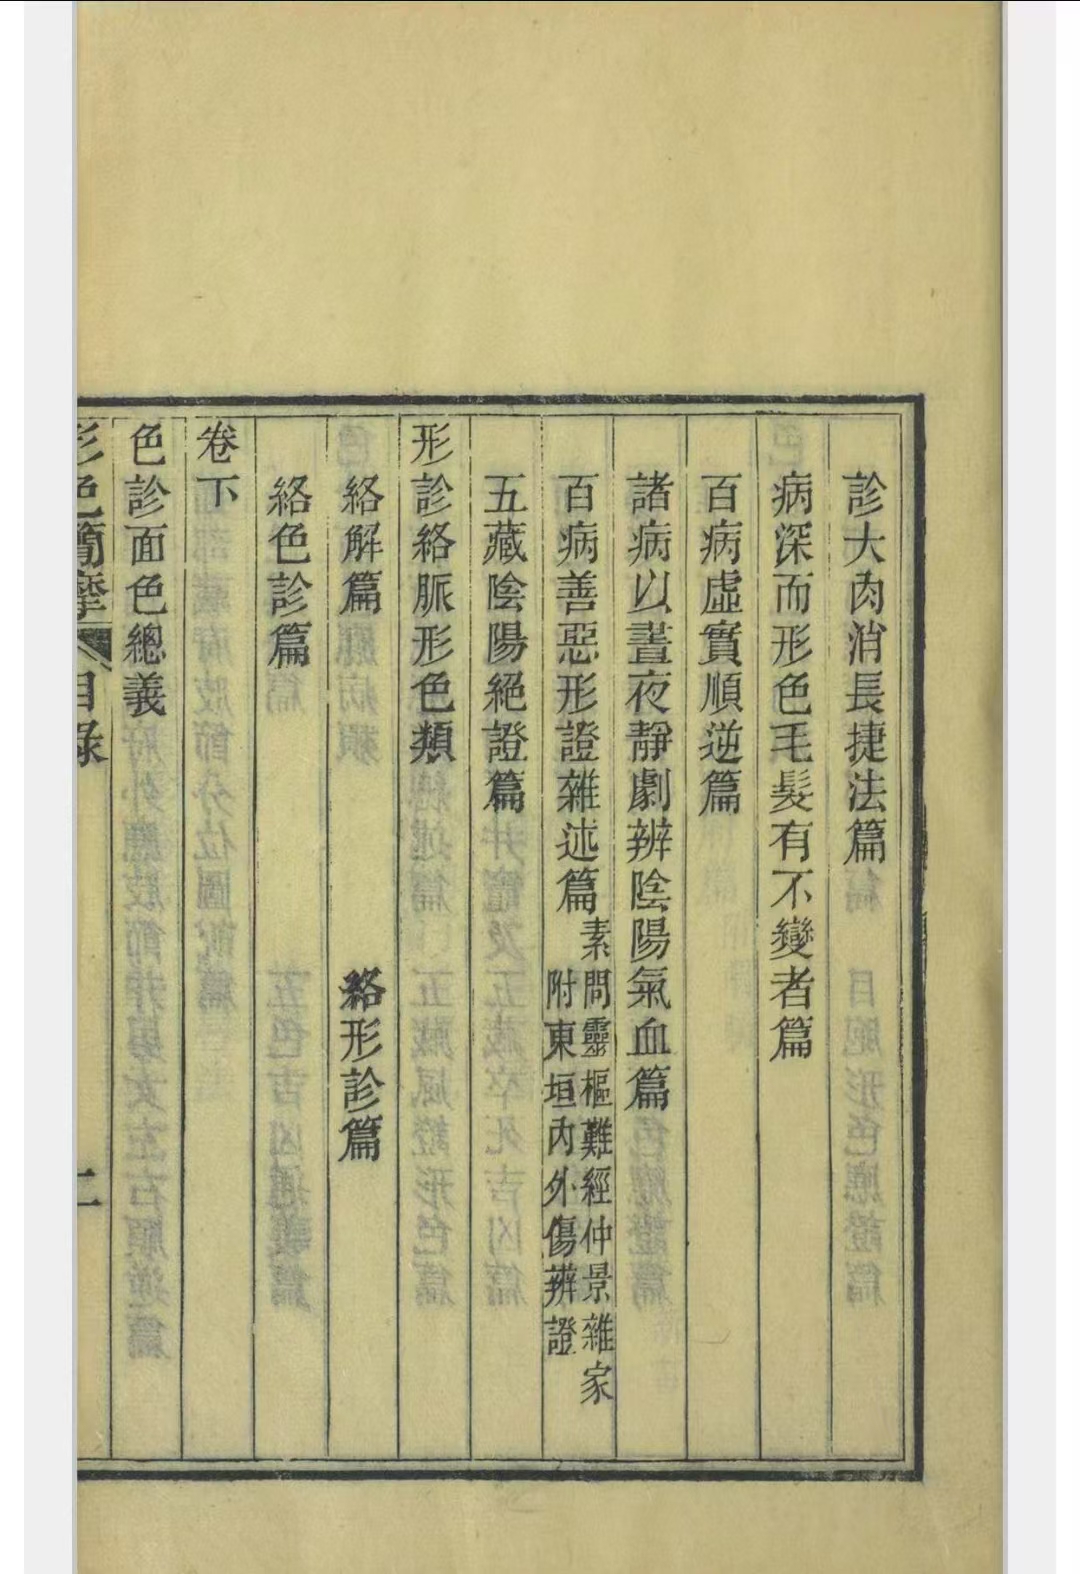 診大肉消長捷法篇
病深而形色毛髮有不變者篇
百病虛實順逆篇
諸病以晝夜靜劇辨陰陽氣血篇
百病善惡形證雜述篇
素問靈樞難經仲景雜家
附東垣內外傷辨證
五藏陰陽絕證篇
形診絡脈形色類
絡解篇 絡形診篇
絡色診篇
卷下
色診面色總義
形色簡摩 目錄 二